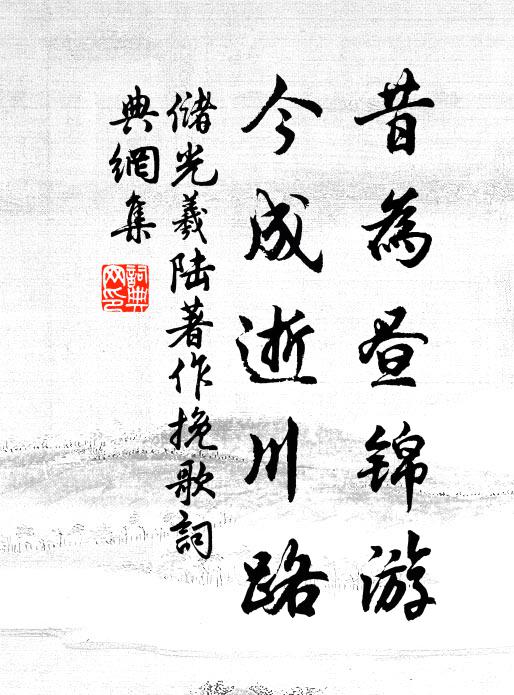 昔為昼錦游
今成逝川路
儲光羲陸著作挽歌詞
典網集
詞典网印